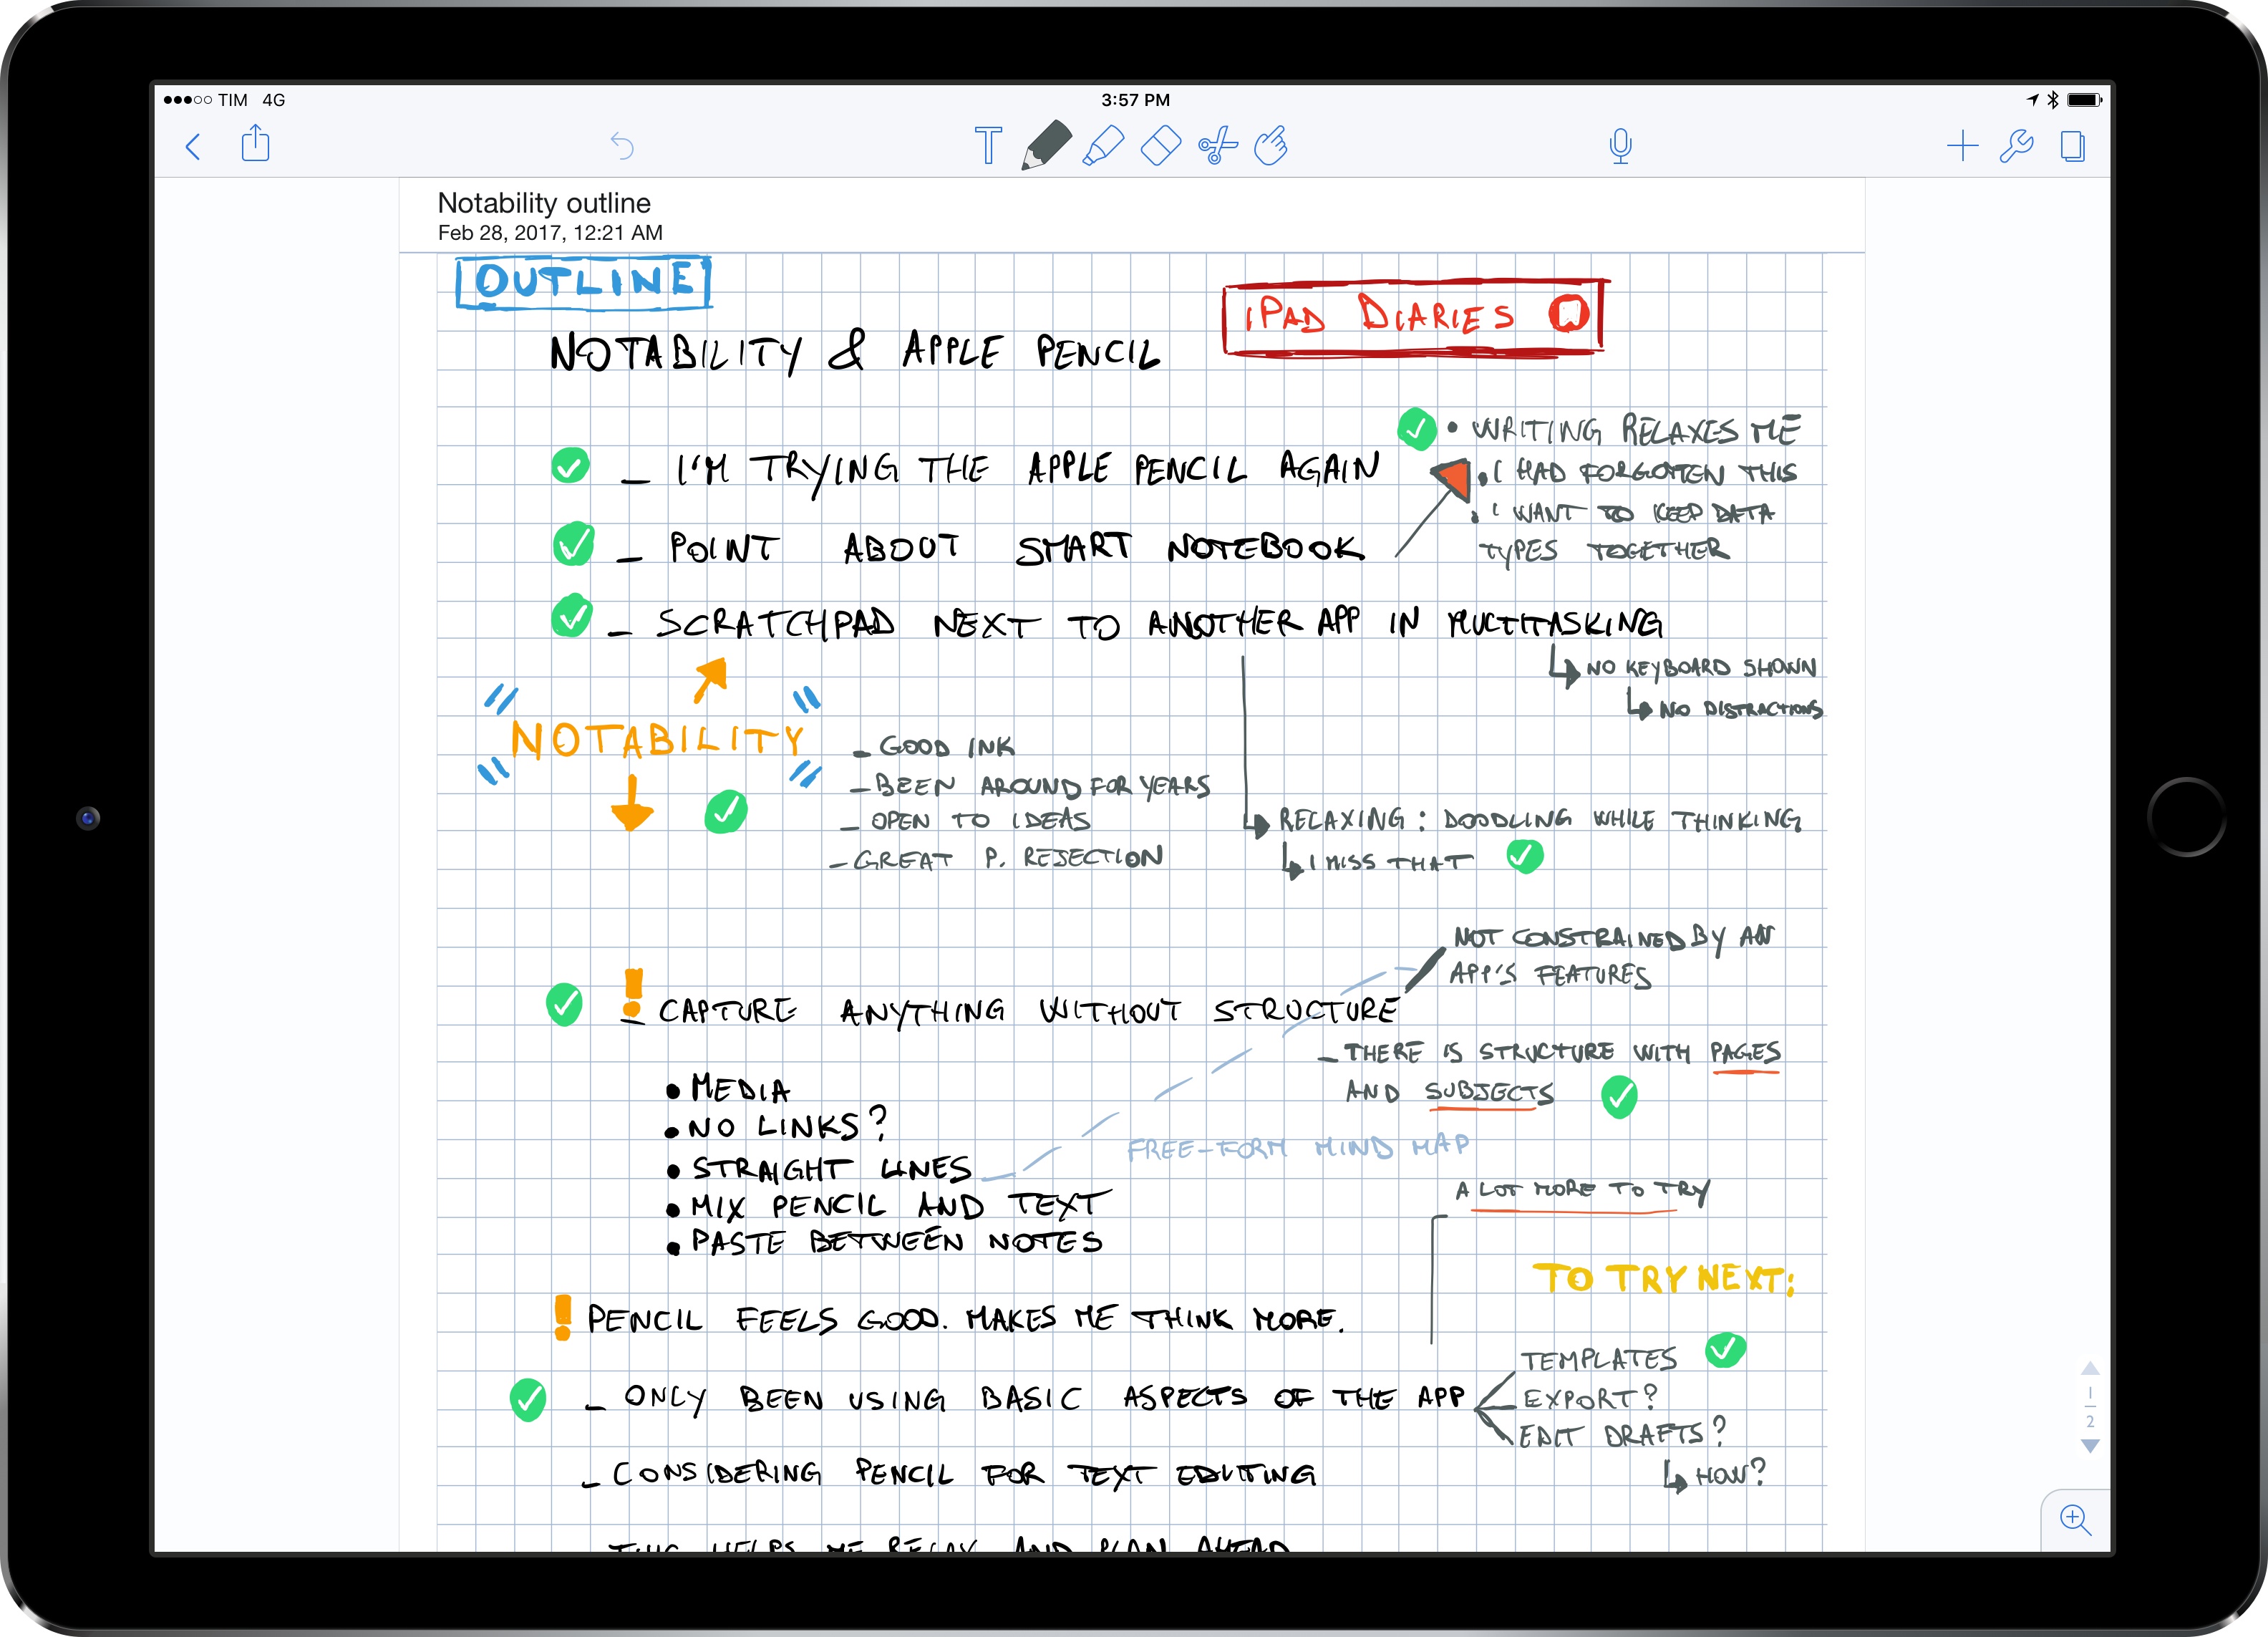 TIM 4G
3:57 PM
Notability outline
Feb 28, 2017, 12:21 AM
OUTLINE
iPAD DIARIES
NOTABILITY & APPLE PENCIL
• WRITING RELAXES ME
• I HAD FORGOTTEN THIS
• I WANT TO KEEP DATA
TYPES TOGETHER
– I'M TRYING THE APPLE PENCIL AGAIN
– POINT ABOUT SMART NOTEBOOK
– SCRATCHPAD NEXT TO ANOTHER APP IN MULTITASKING
NO KEYBOARD SHOWN
NO DISTRACTIONS
NOTABILITY
– GOOD INK
– BEEN AROUND FOR YEARS
– OPEN TO IDEAS
– GREAT P. REJECTION
RELAXING: DOODLING WHILE THINKING
I MISS THAT
NOT CONSTRAINED BY AN
APP'S FEATURES
! – CAPTURE ANYTHING WITHOUT STRUCTURE
– THERE IS STRUCTURE WITH PAGES
AND SUBJECTS
• MEDIA
• NO LINKS?
• STRAIGHT LINES
• MIX PENCIL AND TEXT
• PASTE BETWEEN NOTES
FREE-FORM MIND MAP
A LOT MORE TO TRY
TO TRY NEXT:
! PENCIL FEELS GOOD. MAKES ME THINK MORE.
– ONLY BEEN USING BASIC ASPECTS OF THE APP
TEMPLATES
EXPORT?
EDIT DRAFTS?
HOW?
– CONSIDERING PENCIL FOR TEXT EDITING
THIS HELPS ME RELAX AND PLAN AHEAD
1
2